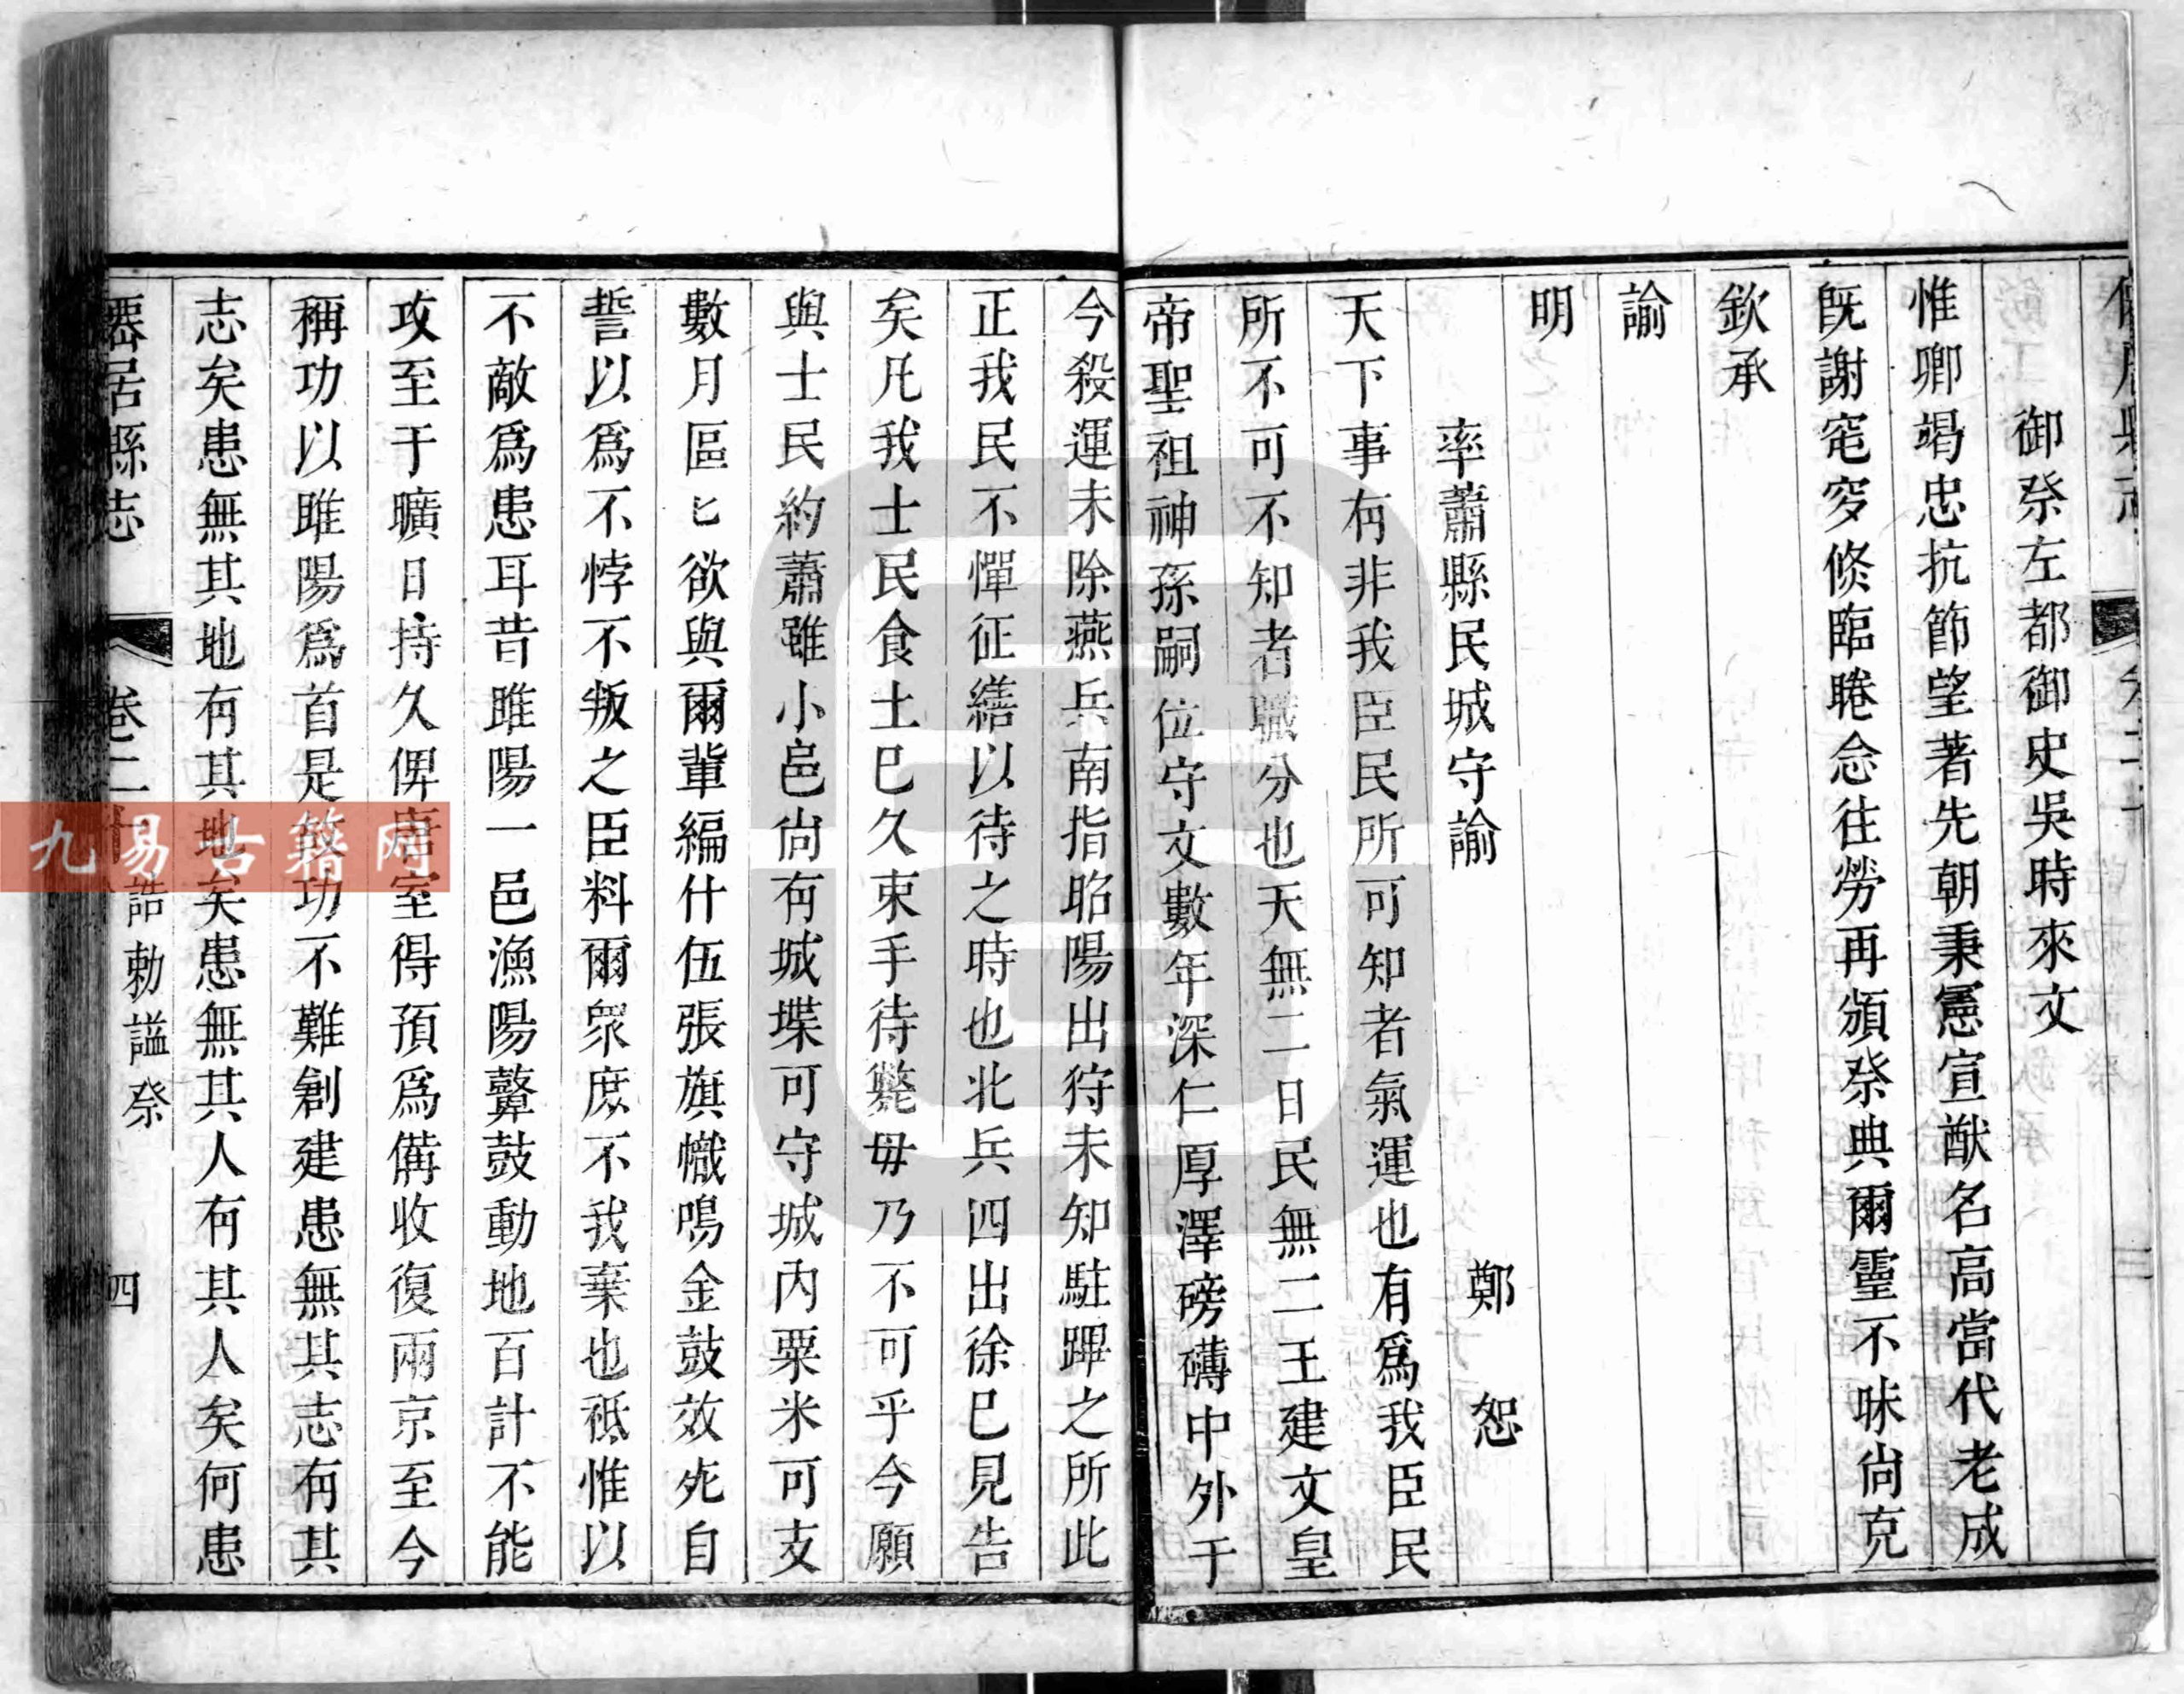 御祭左都御史吳時來文
惟卿竭忠抗節望著先朝秉憲宣猷名高當代老成
旣謝窀穸倐臨睠念往勞再頒祭典爾靈不昧尙克
欽承
諭
明
率蕭縣民城守諭 鄭恕
天下事有非我臣民所可知者氣運也有爲我臣民
所不可不知者職分也天無二日民無二王建文皇
帝聖祖神孫嗣位守文數年深仁厚澤磅礴中外于
今殺運未除燕兵南指昭陽出狩未知駐蹕之所此
正我民不憚征繕以待之時也北兵四出徐已見告
矣凡我士民食土已久束手待斃毋乃不可乎今願
與士民約蕭雖小邑尙有城堞可守城內粟米可支
數月區匕欲與爾輩編什伍張旗幟鳴金鼓效死自
誓以爲不悖不叛之臣料爾衆庶不我棄也祗惟以
不敵爲患耳昔睢陽一邑漁陽鼙鼓動地百計不能
攻至于曠日持久俾唐室得預爲備收復兩京至今
稱功以睢陽爲首是效功不難創建患無其志有其
志矣患無其地有其地矣患無其人有其人矣何患
僊居縣志 卷二十 誥勅諡祭 四